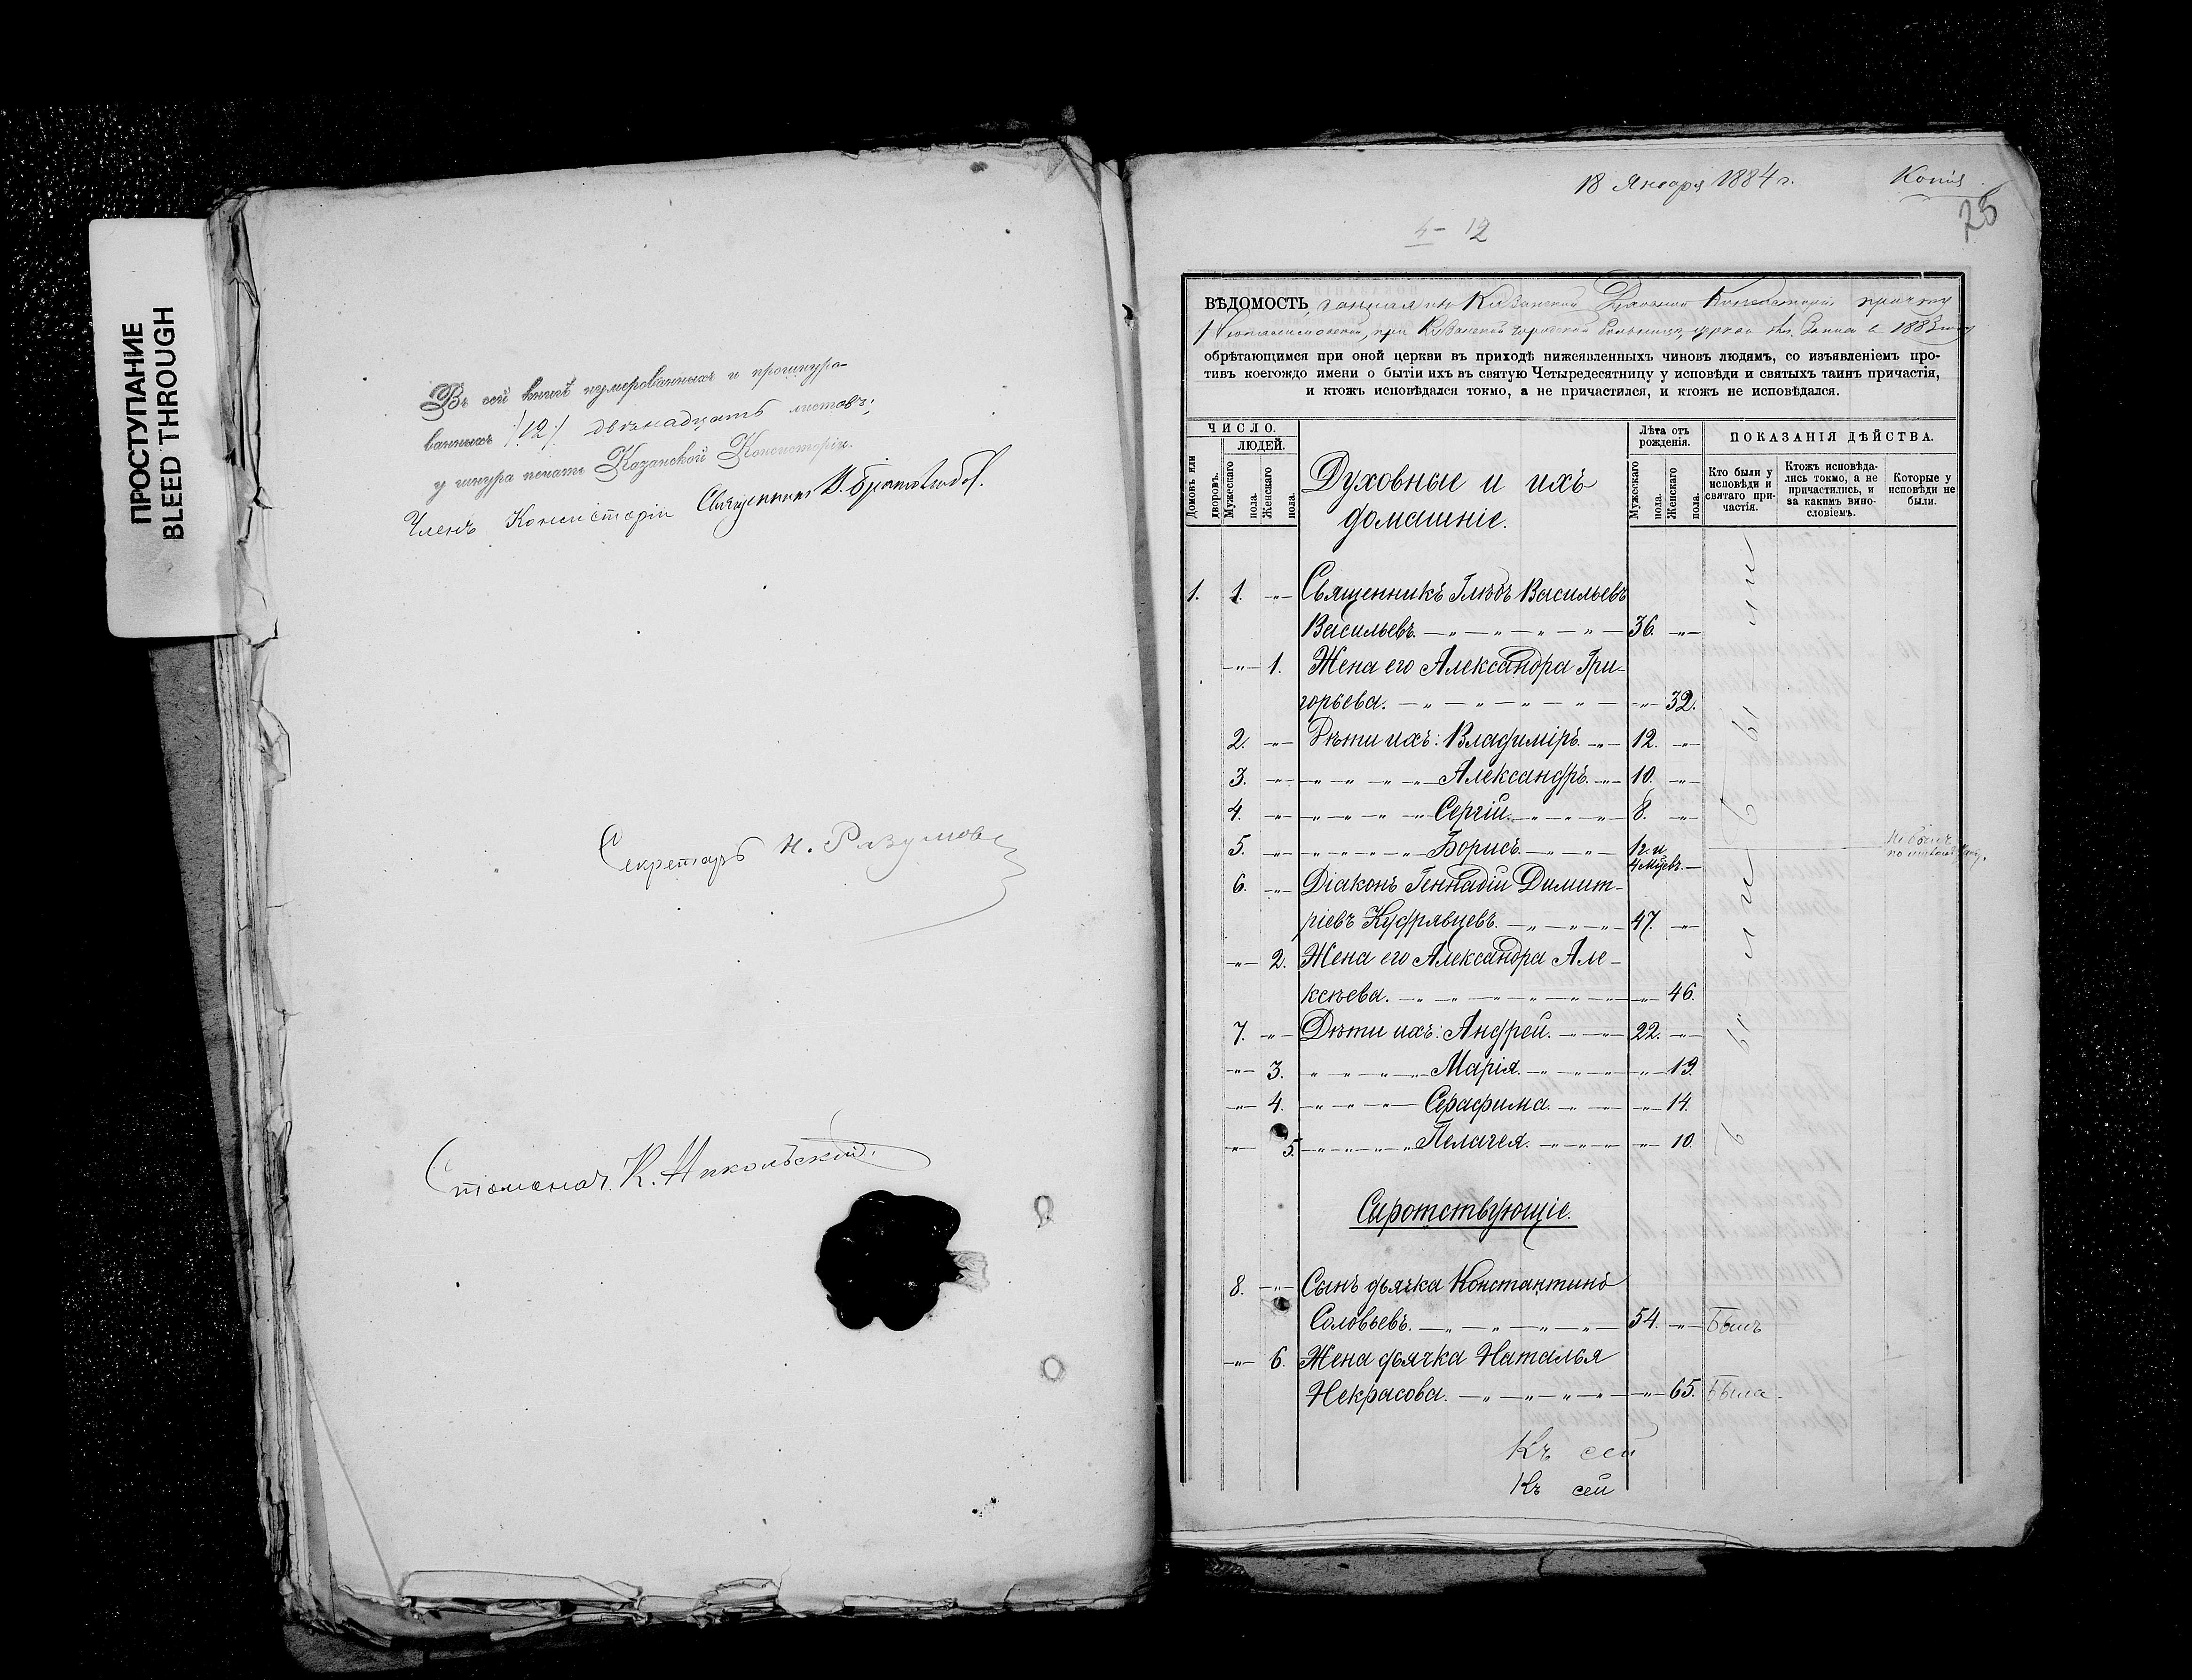 ПРОСТУПАНИЕ
BLEED THROUGH
Въ сей книгѣ нумерованныхъ и прошнуро-
ванныхъ /:12:/ двѣнадцать листовъ;
у шнура печать Казанской Консисторіи.
Членъ Консисторіи Священникъ
Секретарь Н. Разумовъ
К. Никольскій.
18 Января 1884 г. Копія.
26
4 - 12
ВѢДОМОСТЬ, данная изъ Казанской Духовной Консисторіи причту
при Казанской городской больницѣ, церкви на 1883 годъ
обрѣтающимся при оной церкви въ приходѣ нижеявленныхъ чиновъ людямъ, со изъявленіемъ про-
тивъ коегождо имени о бытіи ихъ въ святую Четыредесятницу у исповѣди и святыхъ таинъ причастія,
и ктожъ исповѣдался токмо, а не причастился, и ктожъ не исповѣдался.
ЧИСЛО.
ЛЮДЕЙ.
Домовъ или дворовъ.
Мужескаго пола.
Женскаго пола.
Духовные и ихъ
домашніе.
Лѣта отъ рожденія.
Мужескаго пола.
Женскаго пола.
ПОКАЗАНІЯ ДѢЙСТВА.
Кто были у исповѣди и святаго при-частія.
Ктожъ исповѣда-лись токмо, а не причастились, и за какимъ випо-словіемъ.
Которые у исповѣди не были.
1. 1. -"- Священникъ Глѣбъ Васильевъ
Васильевъ. 36. -"-
-"- 1. Жена его Александра Гри-
горьева. -"- 32.
2. -"- Дѣти ихъ: Владиміръ. 12. -"-
3. -"- Александръ. 10. -"-
4. -"- Сергій. 8. -"-
5. -"- Борисъ. 1 г. и 4 мѣсв.
6. -"- Діаконъ Геннадій Димит-
ріевъ Кудрявцевъ. 47. -"-
-"- 2. Жена его Александра Але-
ксѣева. -"- 46.
7. -"- Дѣти ихъ: Андрей. 22. -"-
-"- 3. Марія. -"- 19.
-"- 4. Серафима. -"- 14.
-"- 5. Пелагея. -"- 10.
были
были
Сиротствующіе.
8. -"- Сынъ дьячка Константинъ
Соловьевъ. 54. -"- Былъ
-"- 6. Жена дьячка Наталья
Некрасова. -"- 65. Была.
Къ сей
Къ сей